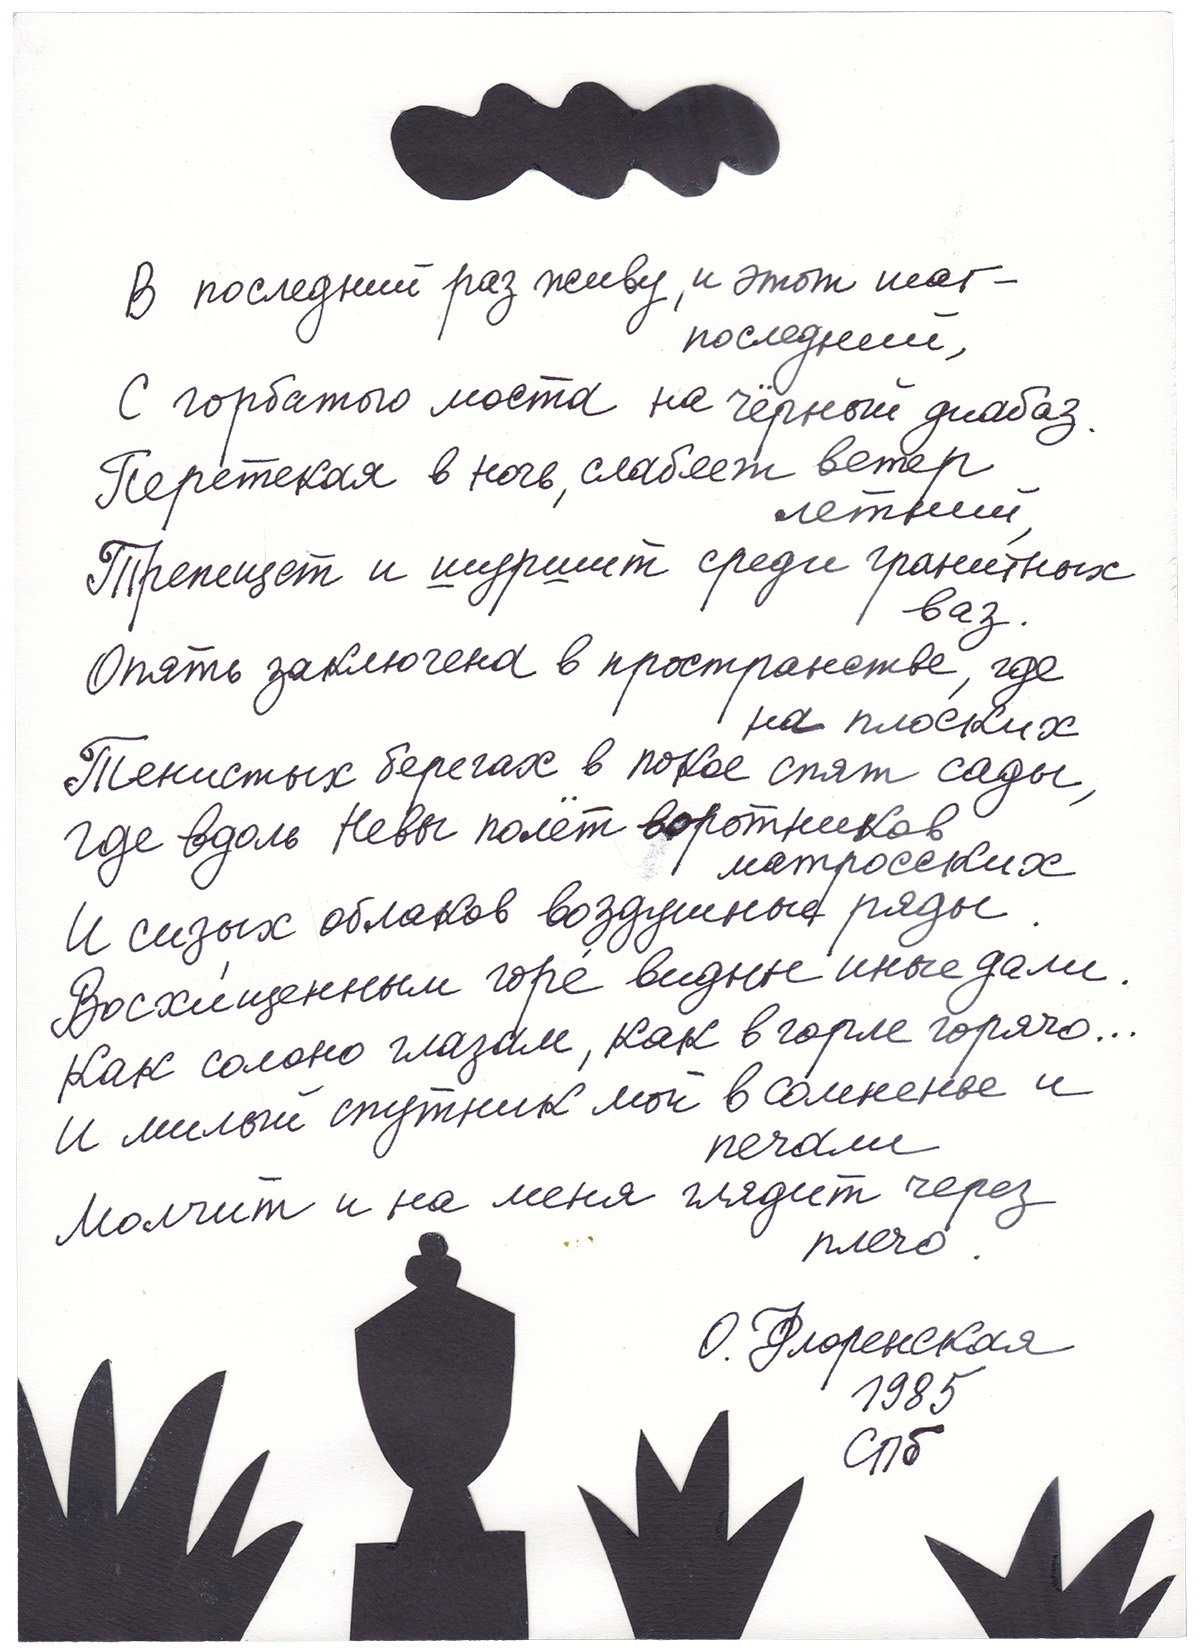 В последний раз живу, и этот шаг –
последний,
С горбатого моста на чёрный диабаз.
Перетекая в ночь, слабеет ветер
летний,
Трепещет и шуршит среди гранитных
ваз.
Опять заключена в пространстве, где
на плоских
Тенистых берегах в покое спят сады,
где вдоль Невы полёт воротников
матросских
И сизых облаков воздушные ряды.
Восхи́щенным горе́ видны иные дали.
Как солоно глазам, как в горле горячо...
И милый спутник мой в сомненье и
печали
Молчит и на меня глядит через
плечо.
О. Флоренская
1985
СПб